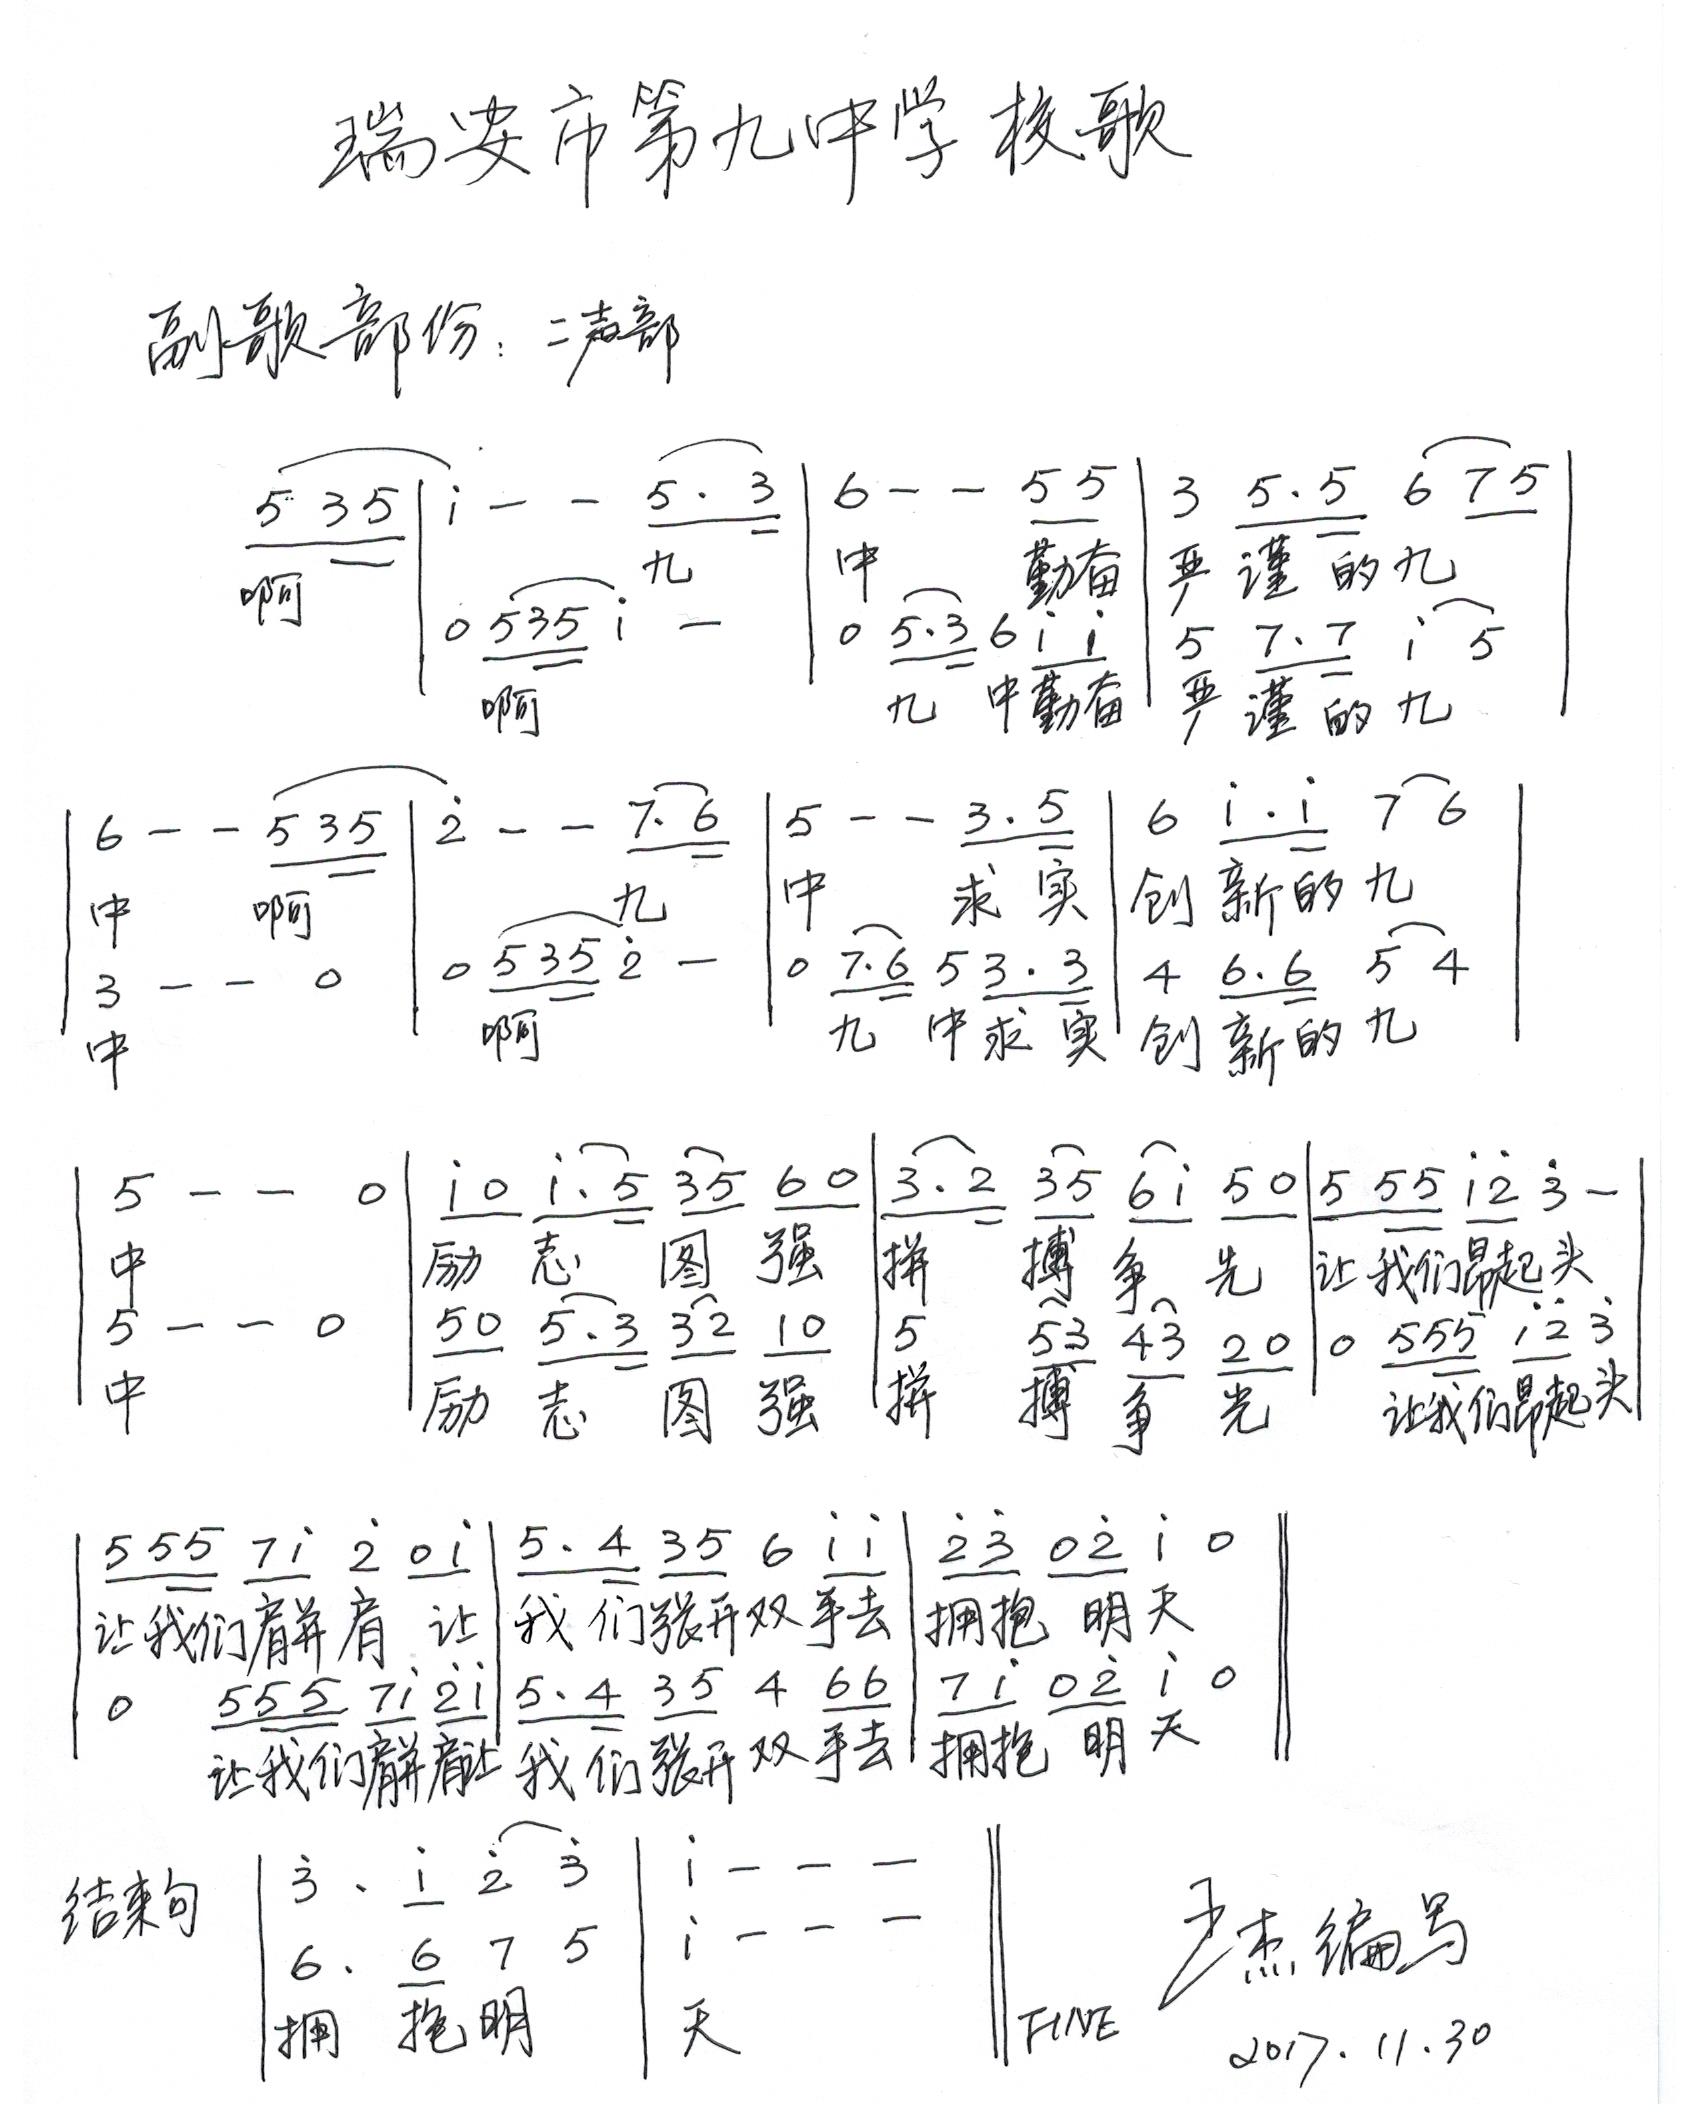 瑞安市第九中学校歌
副歌部份：二声部
5 3 5 | i - - 5. 3 | 6 - - 5 5 | 3 5. 5 6 7 5 |
啊 九 中 勤奋 严谨的九
0 5 3 5 i - | 0 5. 3 6 i i | 5 7. 7 i 5 |
啊 九 中勤奋 严谨的九
| 6 - - 5 3 5 | 2̇ - - 7. 6 | 5 - - 3. 5 | 6 i. i 7 6 |
中 啊 九 中 求实 创新的九
3 - - 0 | 0 5 3 5 2̇ - | 0 7. 6 5 3. 3 | 4 6. 6 5 4 |
中 啊 九 中求实 创新的九
| 5 - - 0 | i 0 i. 5 3 5 6 0 | 3. 2 3 5 6 i 5 0 | 5 5 5 i 2̇ 3̇ - |
中 励志图强 拼搏争先 让我们昂起头
5 - - 0 | 5 0 5. 3 3 2 1 0 | 5 5 3 4 3 2 0 | 0 5 5 5 i 2̇ 3̇ |
中 励志图强 拼搏争光 让我们昂起头
| 5 5 5 7 i 2̇ 0 i | 5. 4 3 5 6 i i | 2̇ 3̇ 0 2̇ i 0 ‖
让我们肩并肩 让 我们张开双手去 拥抱 明天
0 5 5 5 7 i 2̇ i | 5. 4 3 5 4 6 6 | 7 i 0 2̇ i 0 ‖
让我们肩并肩让 我们张开双手去 拥抱 明天
结束句 | 3̇. i 2̇ 3̇ | i - - - ‖
6. 6 7 5 | i - - - ‖
拥 抱明 天 FINE
王杰编写
2017.11.30